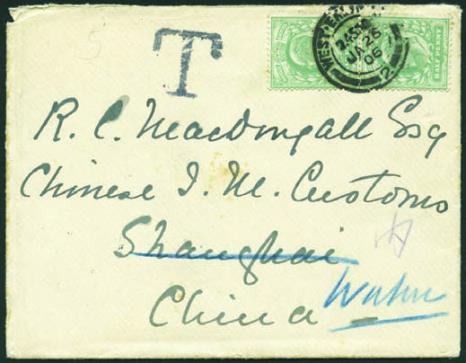 T
HALF PENNY
JA 26
06
2
R. C. MacDougall Esq
Chinese I. M. Customs
Shanghai
China
Wuhu